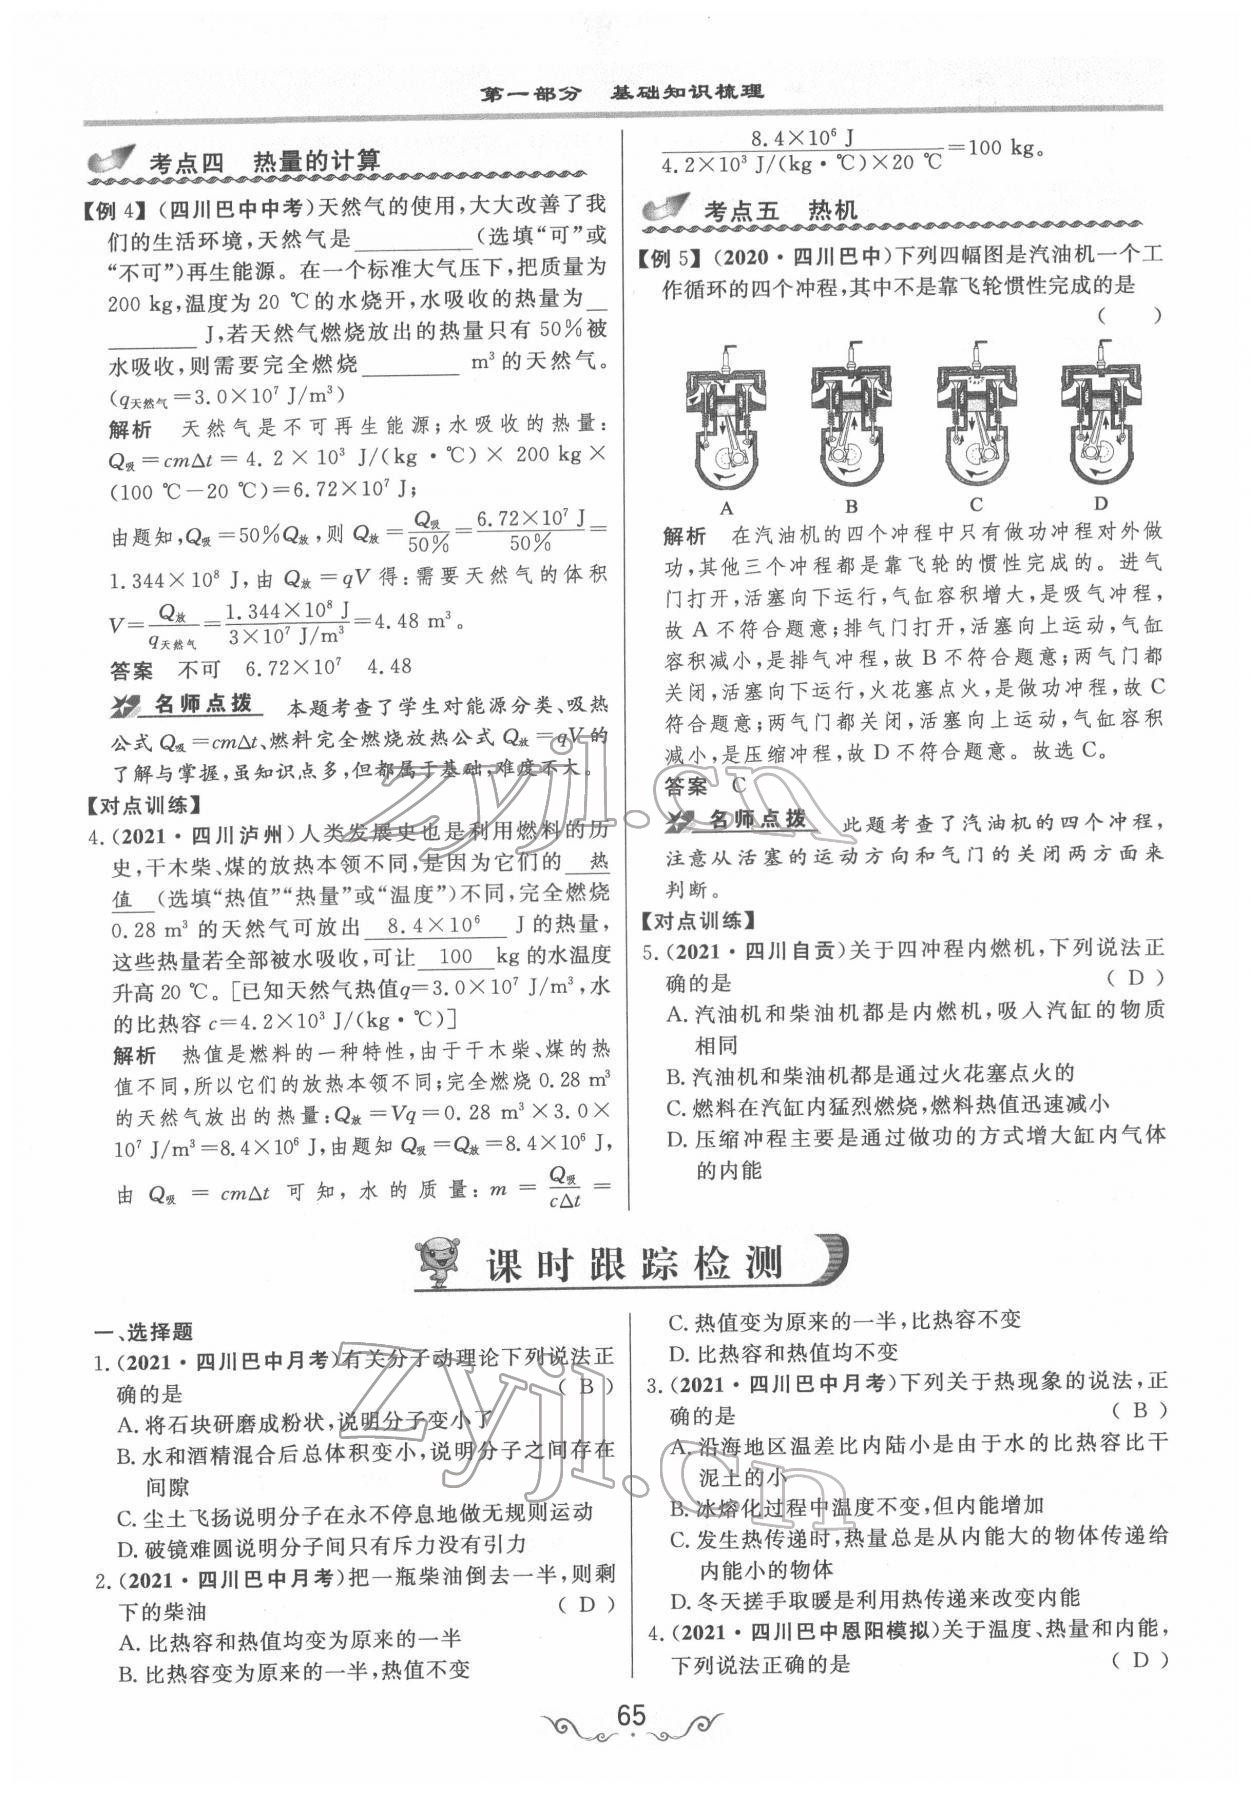 第一部分 基础知识梳理
考点四 热量的计算
【例 4】(四川巴中中考)天然气的使用,大大改善了我
们的生活环境,天然气是__________(选填“可”或
“不可”)再生能源。在一个标准大气压下,把质量为
200 kg,温度为 20 ℃的水烧开,水吸收的热量为__
________J,若天然气燃烧放出的热量只有 50%被
水吸收,则需要完全燃烧________ m³ 的天然气。
(q天然气=3.0×10⁷ J/m³)
解析 天然气是不可再生能源;水吸收的热量:
Q吸=cmΔt=4.2×10³ J/(kg·℃)×200 kg×
(100 ℃-20 ℃)=6.72×10⁷ J;
由题知,Q吸=50%Q放,则 Q放=Q吸/50%=6.72×10⁷ J/50%=
1.344×10⁸ J,由 Q放=qV 得:需要天然气的体积
V=Q放/q天然气=1.344×10⁸ J/3×10⁷ J/m³=4.48 m³。
答案 不可 6.72×10⁷ 4.48
名师点拨 本题考查了学生对能源分类、吸热
公式 Q吸=cmΔt、燃料完全燃烧放热公式 Q放=qV的
了解与掌握,虽知识点多,但都属于基础,难度不大。
【对点训练】
4. (2021·四川泸州)人类发展史也是利用燃料的历
史,干木柴、煤的放热本领不同,是因为它们的 热
值 (选填“热值”“热量”或“温度”)不同,完全燃烧
0.28 m³ 的天然气可放出 8.4×10⁶ J 的热量,
这些热量若全部被水吸收,可让 100 kg 的水温度
升高 20 ℃。[已知天然气热值q=3.0×10⁷ J/m³,水
的比热容 c=4.2×10³ J/(kg·℃)]
解析 热值是燃料的一种特性,由于干木柴、煤的热
值不同,所以它们的放热本领不同;完全燃烧 0.28 m³
的天然气放出的热量:Q放=Vq=0.28 m³×3.0×
10⁷ J/m³=8.4×10⁶ J,由题知 Q吸=Q放=8.4×10⁶ J,
由 Q吸 = cmΔt 可知,水的质量:m = Q吸/cΔt =
8.4×10⁶ J/4.2×10³ J/(kg·℃)×20 ℃=100 kg。
考点五 热机
【例 5】(2020·四川巴中)下列四幅图是汽油机一个工
作循环的四个冲程,其中不是靠飞轮惯性完成的是
( )
A B C D
解析 在汽油机的四个冲程中只有做功冲程对外做
功,其他三个冲程都是靠飞轮的惯性完成的。进气
门打开,活塞向下运行,气缸容积增大,是吸气冲程,
故 A 不符合题意;排气门打开,活塞向上运动,气缸
容积减小,是排气冲程,故 B 不符合题意;两气门都
关闭,活塞向下运行,火花塞点火,是做功冲程,故 C
符合题意;两气门都关闭,活塞向上运动,气缸容积
减小,是压缩冲程,故 D 不符合题意。故选 C。
答案 C
名师点拨 此题考查了汽油机的四个冲程,
注意从活塞的运动方向和气门的关闭两方面来
判断。
【对点训练】
5. (2021·四川自贡)关于四冲程内燃机,下列说法正
确的是 ( D )
A. 汽油机和柴油机都是内燃机,吸入汽缸的物质
相同
B. 汽油机和柴油机都是通过火花塞点火的
C. 燃料在汽缸内猛烈燃烧,燃料热值迅速减小
D. 压缩冲程主要是通过做功的方式增大缸内气体
的内能
课时跟踪检测
一、选择题
1. (2021·四川巴中月考)有关分子动理论下列说法正
确的是 ( B )
A. 将石块研磨成粉状,说明分子变小了
B. 水和酒精混合后总体积变小,说明分子之间存在
间隙
C. 尘土飞扬说明分子在永不停息地做无规则运动
D. 破镜难圆说明分子间只有斥力没有引力
2. (2021·四川巴中月考)把一瓶柴油倒去一半,则剩
下的柴油 ( D )
A. 比热容和热值均变为原来的一半
B. 比热容变为原来的一半,热值不变
C. 热值变为原来的一半,比热容不变
D. 比热容和热值均不变
3. (2021·四川巴中月考)下列关于热现象的说法,正
确的是 ( B )
A. 沿海地区温差比内陆小是由于水的比热容比干
泥土的小
B. 冰熔化过程中温度不变,但内能增加
C. 发生热传递时,热量总是从内能大的物体传递给
内能小的物体
D. 冬天搓手取暖是利用热传递来改变内能
4. (2021·四川巴中恩阳模拟)关于温度、热量和内能,
下列说法正确的是 ( D )
65
zyjl.cn
zyjl.cn